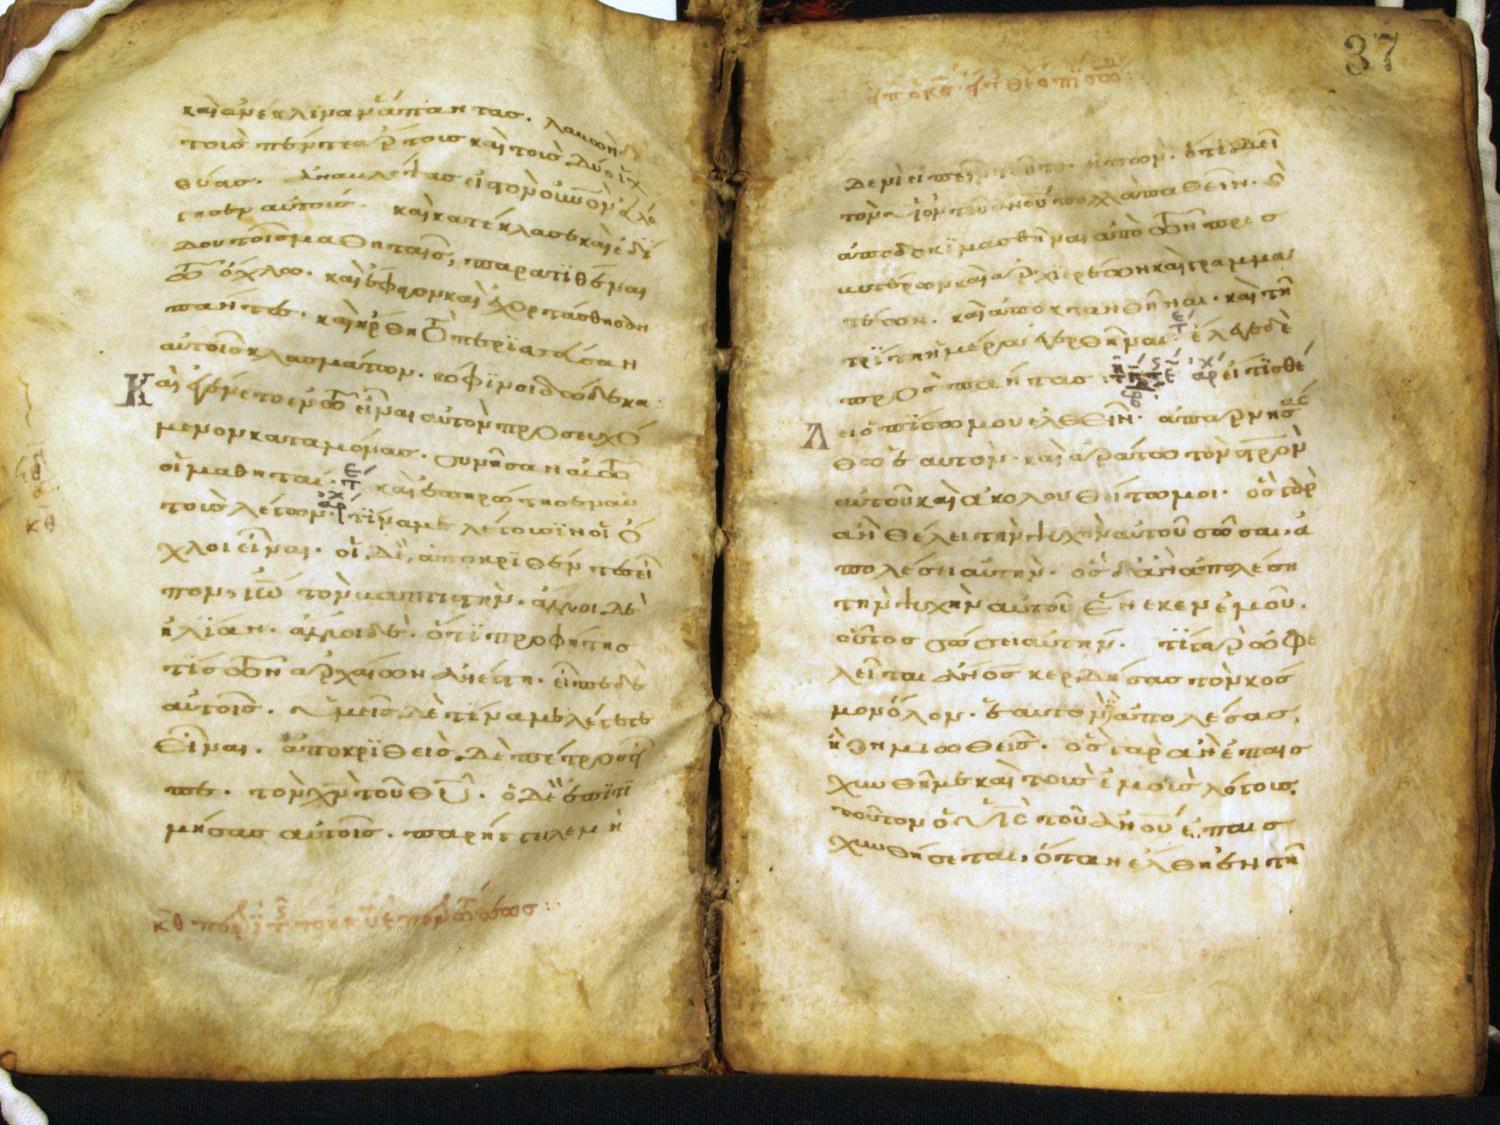 καὶ ἀνέκλιναν ἅπαντας. λαβὼν δὲ
τοὺς πέντε ἄρτους καὶ τοὺς δύο ἰχ
θύας. ἀναβλέψας εἰς τὸν οὐνον εὐλό
γησεν αὐτούς. καὶ κατέκλασε καὶ ἐδί
δου τοῖς μαθηταῖς, παρατιθέναι
τῶ ὄχλω. καὶ ἔφαγον καὶ ἐχορτάσθησαν
παντες. καὶ ἤρθη τὸ περισσεῦσαν
αὐτοῖς κλασμάτων. κόφινοι δώδεκα
Καὶ ἐγένετο ἐν τῶ εἶναι αὐτὸν προσευχό
μενον καταμόνας. συνῆσαν αὐτῶ
οἱ μαθηταί. καὶ ἐπηρώτησεν αὐ
τοὺς λέγων. τίνα με λέγουσιν οἱ ὄ
χλοι εἶναι. οἱ δὲ ἀποκριθέντες εἶ
πον, ἰω τὸν βαπτιστήν. ἄλλοι δὲ
ἠλίαν. ἄλλοι δὲ. ὅτι προφήτης
τὶς τῶν ἀρχαίων ἀνέστη. εἶπε δὲ
αὐτοῖς. ὑμεῖς δὲ τίνα με λέγετε
εἶναι. ἀποκριθεὶς δὲ πέτρος εἶ
πε. τὸν χν τοῦ θυ. ὁ δὲ ἐπιτι
μήσας αὐτοῖς. παρήγγειλε μη
κθ
37
δενὶ εἰπεῖν τοῦτο. εἰπὼν. ὅτι δεῖ
τὸν υἱὸν τοῦ ανου πολλὰ παθεῖν. καὶ
ἀποδοκιμασθῆναι ἀπὸ τῶν πρεσ
βυτέρων καὶ ἀρχιερέων καὶ γραμμα
τέων. καὶ ἀποκτανθῆναι. καὶ τῆ
τρίτη ἡμέρα ἐγερθῆναι. ἔλεγε δὲ
πρὸς πάντας. εἴ τις θέ
Λει ὀπίσω μου ἐλθεῖν. ἀπαρνησάσ
θω ἑαυτὸν. καὶ ἀράτω τὸν στρον
αὐτοῦ καὶ ἀκολουθείτω μοι. ὃς γὰρ
ἂν θέλει τὴν ψυχὴν αὐτοῦ σῶσαι, ἀ
πολέσει αὐτὴν. ὃς δ' ἂν ἀπολέση
τὴν ψυχὴν αὐτοῦ ἕνεκεν ἐμοῦ.
οὗτος σώσει αὐτήν. τί γὰρ ὠφε
λεῖται ανος κερδήσας τὸν κόσ
μον ὅλον. ἑαυτὸν δὲ ἀπολέσας,
ἢ ζημιωθεὶς. ὃς γὰρ ἂν ἐπαισ
χυνθῆ με καὶ τοὺς ἐμοὺς λόγους.
τοῦτον ὁ υἱὸς τοῦ ανου ἐπαισ
χυνθήσεται, ὅταν ἔλθη ἐν τῆ